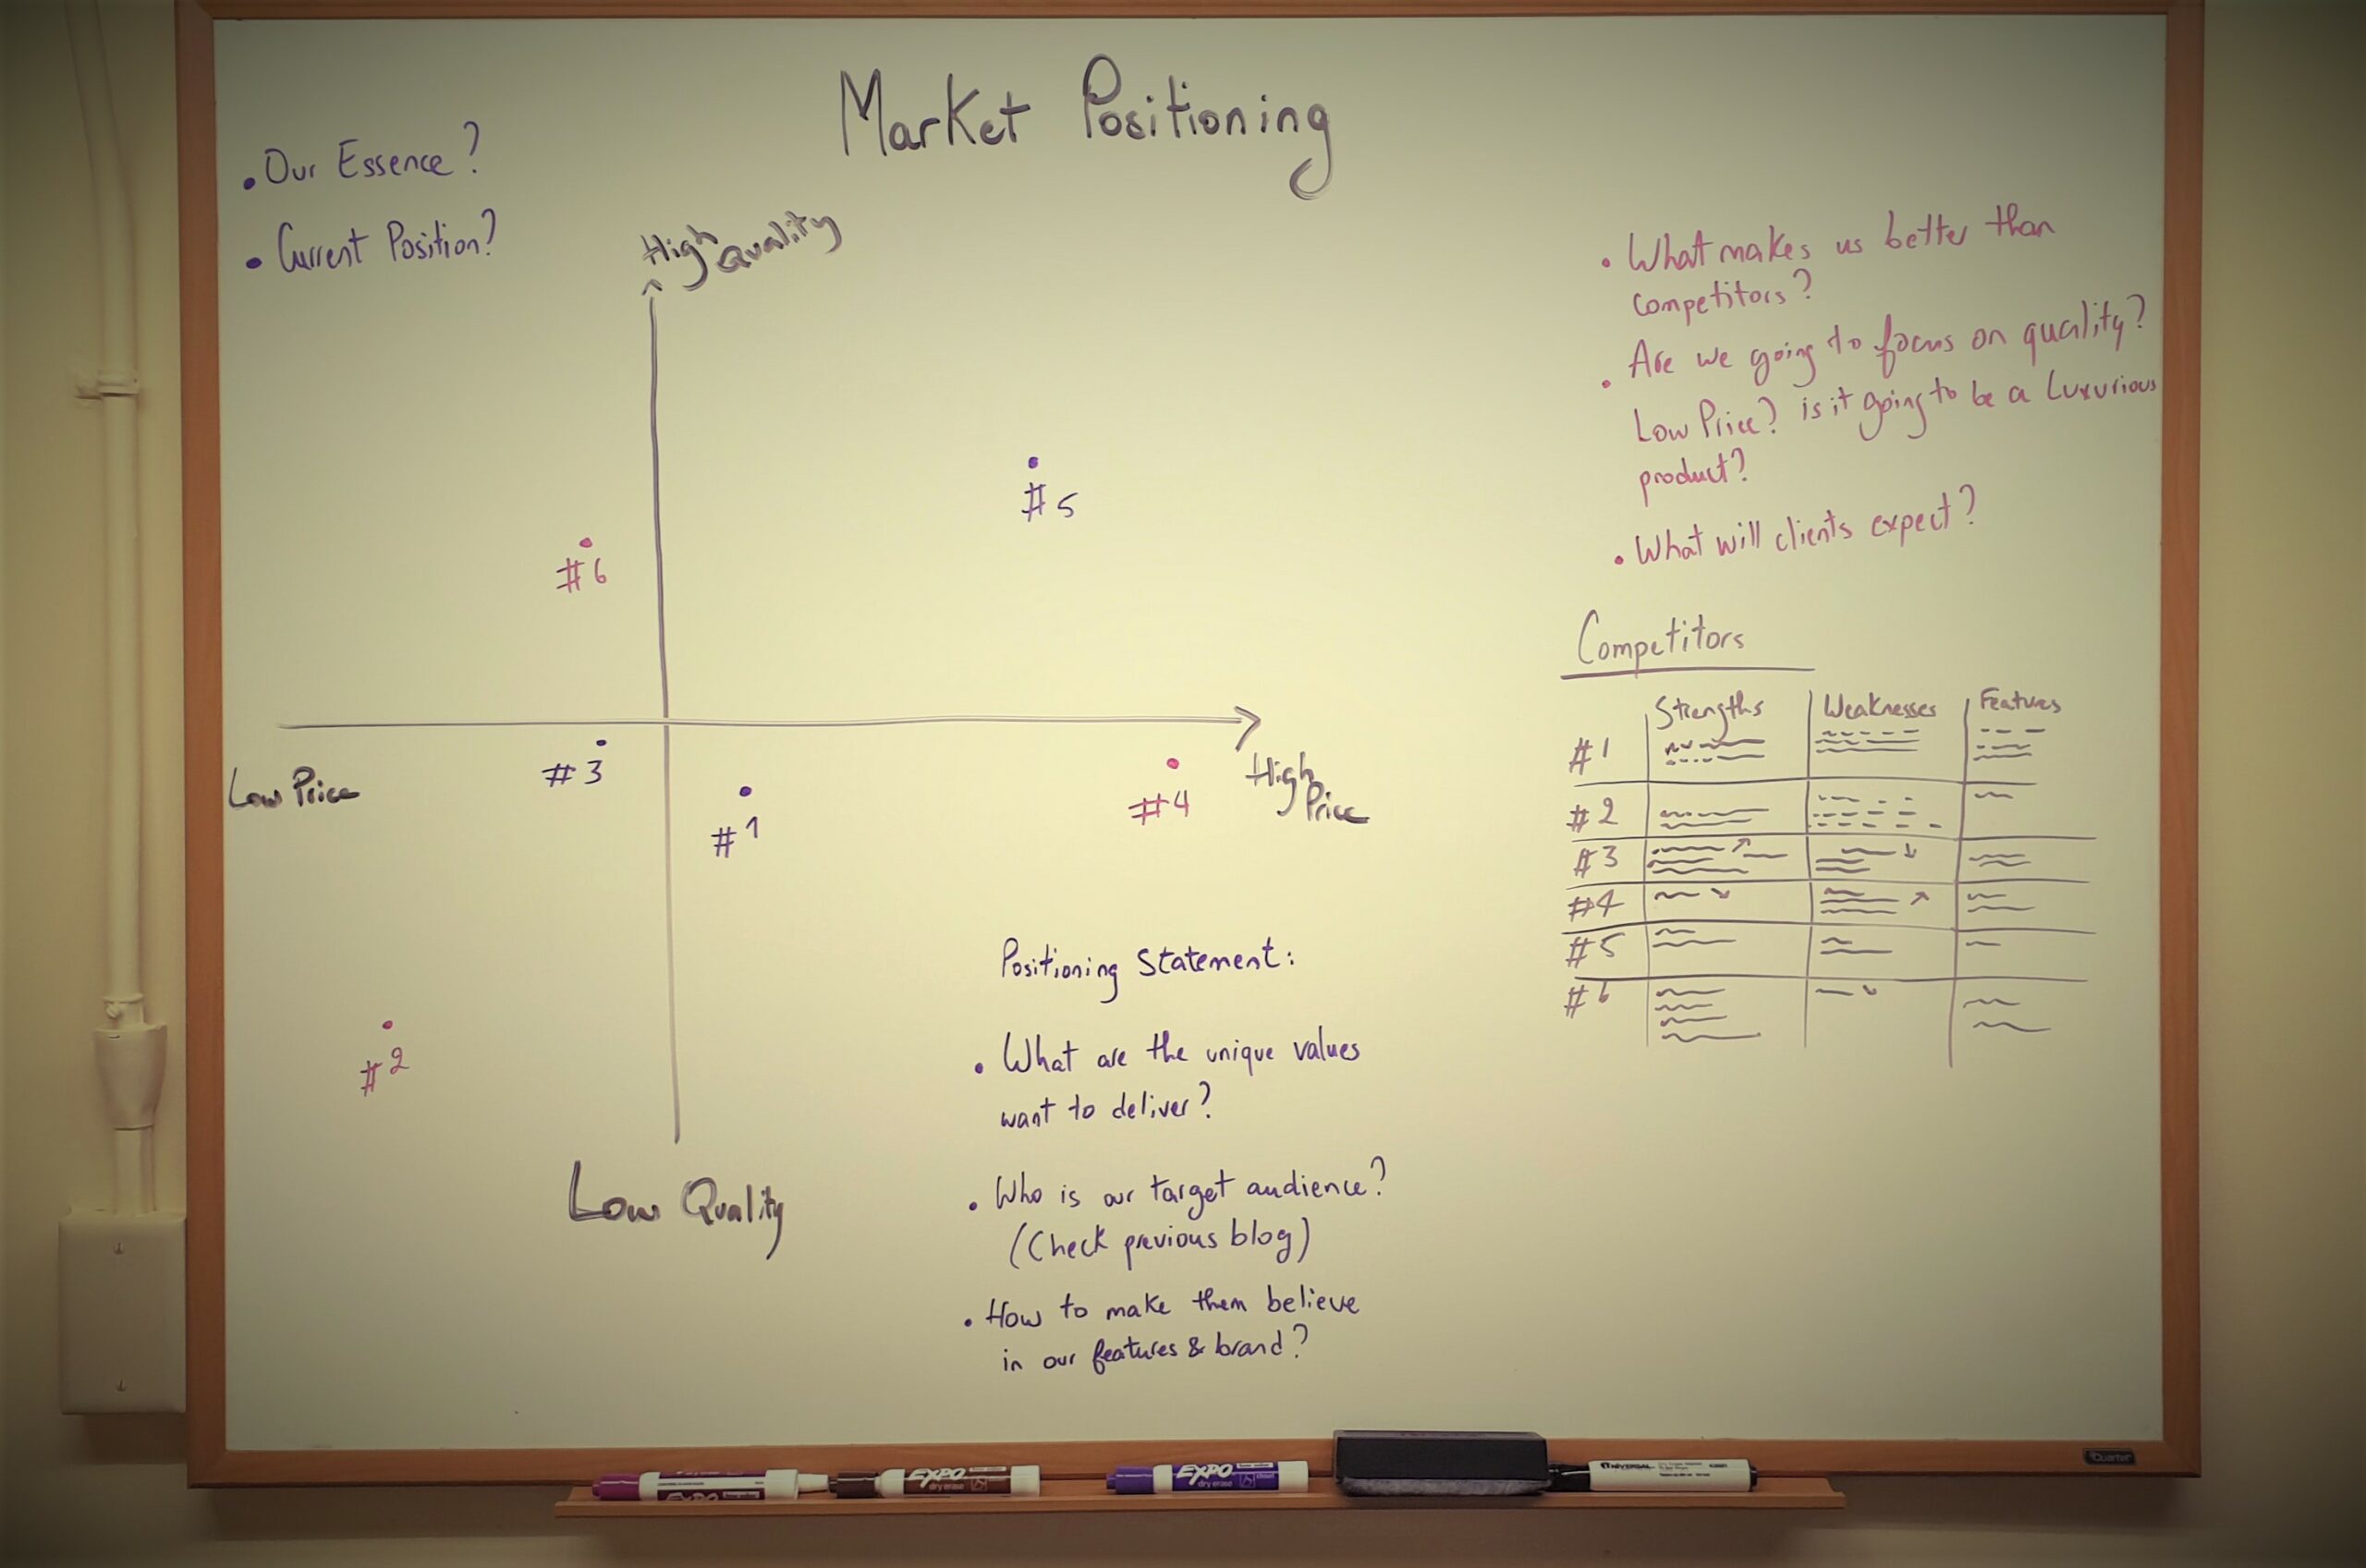 Market Positioning
• Our Essence?
• Current Position?
High
Quality
• What makes us better than
competitors?
• Are we going to focus on quality?
Low Price? is it going to be a Luxurious
product?
• What will clients expect?
#5
#6
#3
Low Price
#1
#4
High
Price
#2
Low Quality
Competitors
Strengths Weaknesses Features
#1
#2
#3
#4
#5
#6
Positioning Statement:
• What are the unique values
want to deliver?
• Who is our target audience?
(Check previous blog)
• How to make them believe
in our features & brand?
Quartet
EXPO
EXPO
dry erase
EXPO
dry erase
UNIVERSAL